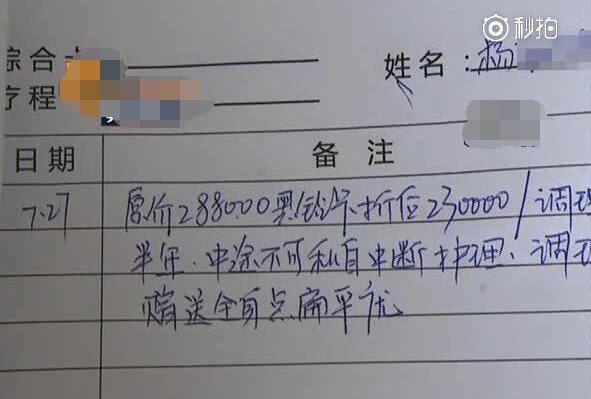 秒拍
综合
姓名：杨
疗程
日期 备注
7.27 原价288000黑钻卡折后230000/调理
半年.中途不可私自中断护理、调理
赠送全身点扁平疣